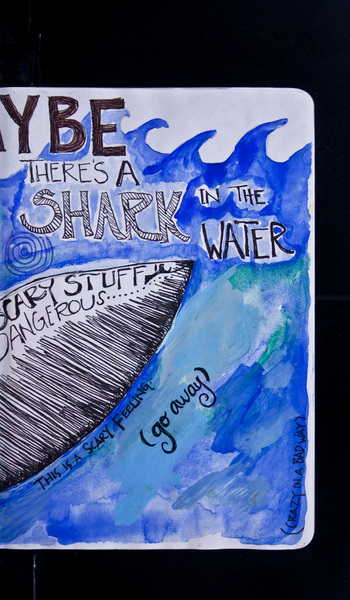 AYBE
THERE'S A
SHARK
IN THE
WATER
SCARY STUFF
DANGEROUS......
THIS IS A SCARY FEELING!
(go away)
(CRAZY IN A BAD WAY)